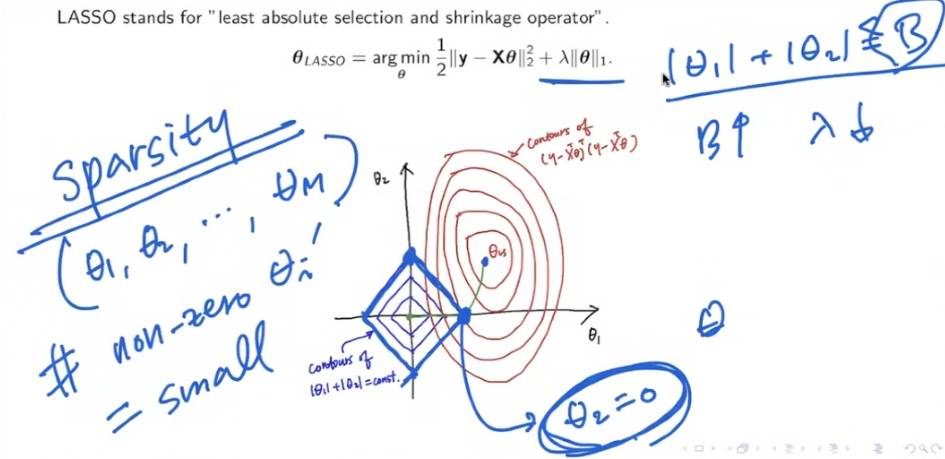 LASSO stands for "least absolute selection and shrinkage operator".
θ_LASSO = arg min_θ 1/2 ‖y − Xθ‖₂² + λ‖θ‖₁.
|θ₁| + |θ₂| ≤ B
B↑ λ↓
Sparsity
(θ₁, θ₂, ..., θ_M)
# non-zero θᵢ!
= small
contours of
(y-Xθ)ᵀ(y-Xθ)
θ₂
θ_LS
θ₁
contours of
|θ₁|+|θ₂|=const.
θ
θ₂=0